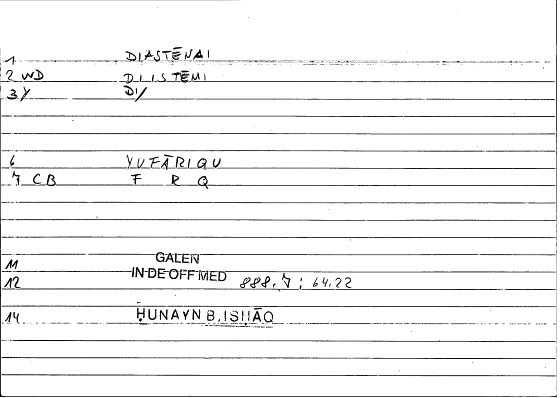 1 DIASTĒNAI
2 WD DIISTĒMI
3 Y DI/
6 YUFĀRIQU
7 CB F R Q
11 GALEN
12 IN DE OFF MED 888.7 : 64.22
14 ḤUNAYN B. ISḤĀQ